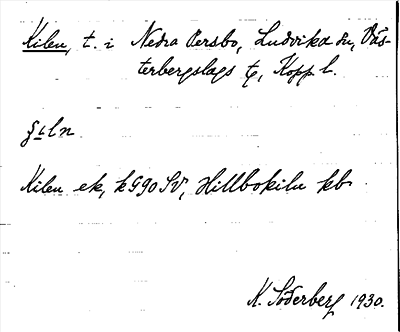 Kilen, t. i Nedra Persbo, Ludvika sn, Väs-
terbergslags tg, Kopp. l.
Kilen ek, k 990 SV, Hillbokilu kb
K. Söderberg 1930.